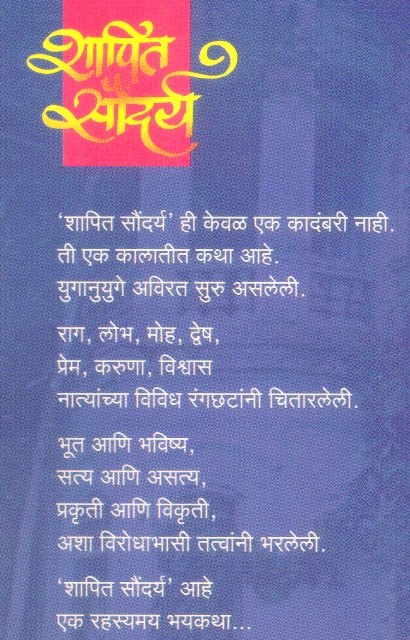 शापित
सौंदर्य
‘शापित सौंदर्य’ ही केवळ एक कादंबरी नाही.
ती एक कालातीत कथा आहे.
युगानुयुगे अविरत सुरु असलेली.
राग, लोभ, मोह, द्वेष,
प्रेम, करुणा, विश्वास
नात्यांच्या विविध रंगछटांनी चितारलेली.
भूत आणि भविष्य,
सत्य आणि असत्य,
प्रकृती आणि विकृती,
अशा विरोधाभासी तत्वांनी भरलेली.
‘शापित सौंदर्य’ आहे
एक रहस्यमय भयकथा...